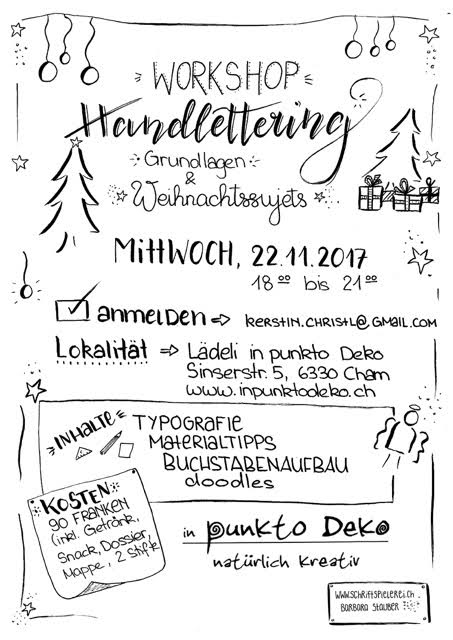 WORKSHOP
Handlettering
Grundlagen
&
Weihnachtssujets
MITTWOCH, 22.11.2017
18⁰⁰ bis 21⁰⁰
anmelden ⇒ kerstin.christl@gmail.com
Lokalität ⇒ Lädeli in punkto Deko
Sinserstr. 5, 6330 Cham
www.inpunktodeko.ch
INHALTE
TYPOGRAFIE
MATERIALTIPPS
BUCHSTABENAUFBAU
doodles
KOSTEN:
90 FRANKEN
(inkl. Getränk,
Snack, Dossier,
Mappe, 2 Stifte
in punkto Deko
natürlich kreativ
WWW.SCHRIFTSPIELEREI.CH
BARBARA STAUBER